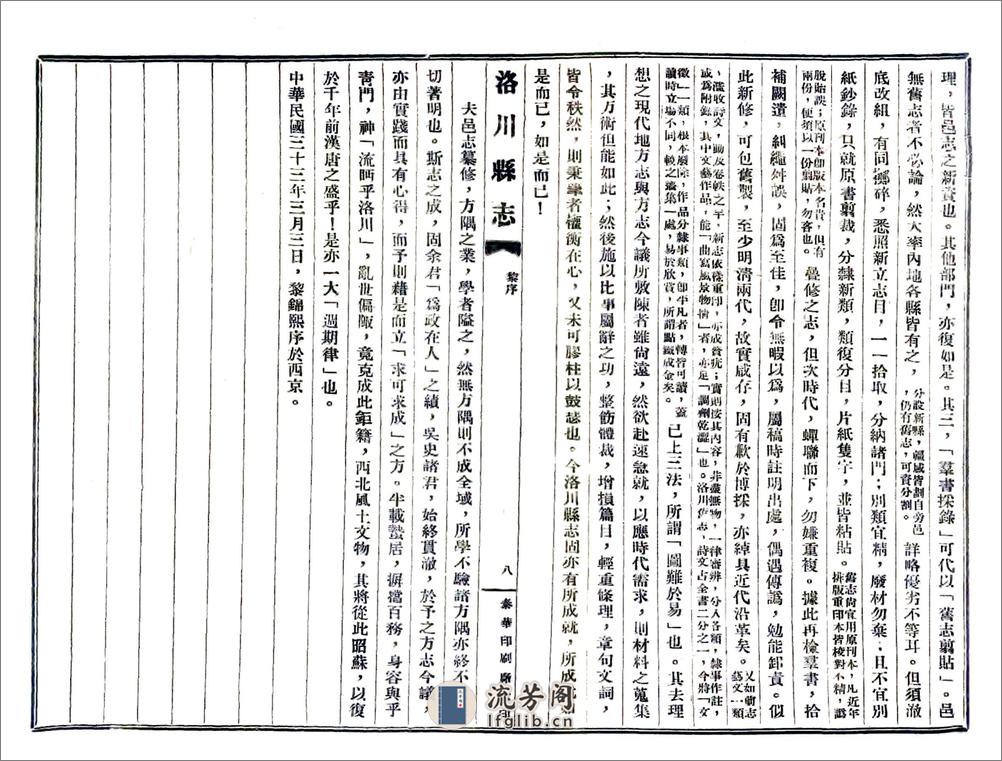 理，皆邑志之新責也。其他部門，亦復如是。其三，「羣書採錄」可代以「舊志剪貼」。邑
無舊志者不必論，然大率內地各縣皆有之，分設新縣，疆域皆劃自旁邑，仍有舊志，可資分割。詳略優劣不等耳。但須澈
底改組，有同擲碎，悉照新立志目，一一拾取，分納諸門；別類宜精，廢材勿棄；且不宜別
紙鈔錄，只就原書剪裁，分隸新類，類復分目，片紙隻字，並皆粘貼。舊志尚宜用原刊本，凡近年排版重印本皆校對不精，譌
脫貽誤；原刊本卽版本名貴，但有兩份，便須以一份剪貼，勿吝也。疊修之志，但次時代，蟬聯而下，勿嫌重複。據此再檢羣書，拾
補闕遺，糾繩舛誤，固爲至佳，卽令無暇以爲，屬稿時註明出處，偶遇傳譌，勉能卸責。似
此新修，可包舊製，至少明清兩代，故實咸存，固有歉於博採，亦綽具近代沿革矣。又如舊志藝文一類
，濫收詩文，動及卷帙之半，新志依樣重印，亦成贅疣；實則按其內容，非盡無物，一律審辨，分入各類，隸事作註，
成爲附錄，其中文藝作品，能「曲寫風景物情」者，亦足「調劑乾澀」也。洛川舊志，詩文占全書二分之一，今將「文
徵」一類，根本廢除，作品分隸事類，卽平凡者，轉皆可讀，蓋讀時立場不同，較之叢集一處，易於欣賞，所謂點鐵成金矣。已上三法，所謂「圖難於易」也。其去理
想之現代地方志與方志今議所敷陳者雖尚遠，然欲赴速急就，以應時代需求，則材料之蒐集
，其方術但能如此；然後施以比事屬辭之功，整飭體裁，增損篇目，輕重條理，章句文詞，
皆令秩然，則秉筆者權衡在心，又未可膠柱以鼓瑟也。今洛川縣志固亦有所成就，所成就
是而已，如是而已！
洛川縣志
黎序
八
泰華印刷廠印
夫邑志纂修，方隅之業，學者隘之，然無方隅則不成全域，所學不驗諸方隅亦終不
切著明也。斯志之成，固余君「爲政在人」之績，吳史諸君，始終貫澈，於予之方志今議，
亦由實踐而具有心得，而予則藉是而立「求可求成」之方。半載蟄居，摒擋百務，身容與乎
青門，神「流眄乎洛川」，亂世偏陬，竟克成此鉅籍，西北風土文物，其將從此昭蘇，以復
於千年前漢唐之盛乎！是亦一大「週期律」也。
中華民國三十三年三月三日，黎錦熙序於西京。
流芳阁
lfglib.cn